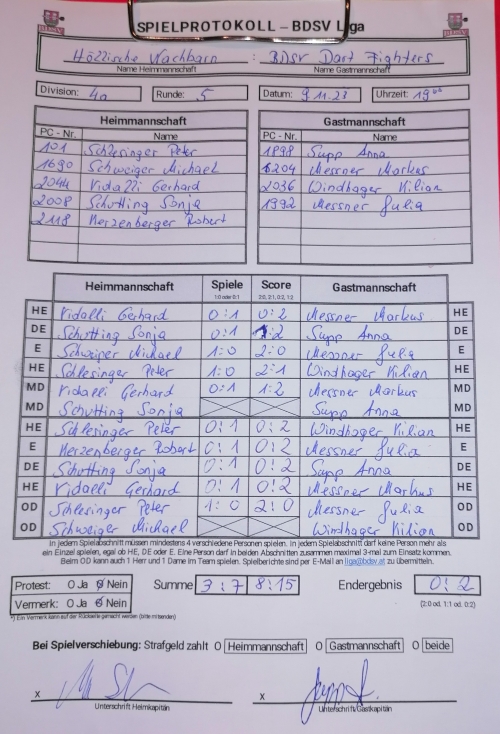 SPIELPROTOKOLL – BDSV Liga
Höllische Nachbarn : BDSV Dart Fighters
Name Heimmannschaft Name Gastmannschaft
Division: 4a Runde: 5 Datum: 9.11.23 Uhrzeit: 19⁰⁰
Heimmannschaft Gastmannschaft
PC - Nr. Name PC - Nr. Name
101 Schlesinger Peter 1898 Supp Anna
1690 Schweiger Michael 1204 Messner Markus
2044 Vidalli Gerhard 2036 Windhager Kilian
2008 Schutting Sonja 1992 Messner Julia
2118 Herzenberger Robert
Heimmannschaft Spiele Score Gastmannschaft
1:0 oder 0:1 2:0, 2:1, 0:2, 1:2
HE Vidalli Gerhard 0:1 0:2 Messner Markus HE
DE Schutting Sonja 0:1 1:2 Supp Anna DE
E Schweiger Michael 1:0 2:0 Messner Julia E
HE Schlesinger Peter 1:0 2:1 Windhager Kilian HE
MD Vidalli Gerhard 0:1 1:2 Messner Markus MD
MD Schutting Sonja Supp Anna MD
HE Schlesinger Peter 0:1 0:2 Windhager Kilian HE
E Herzenberger Robert 0:1 0:2 Messner Julia E
DE Schutting Sonja 0:1 0:2 Supp Anna DE
HE Vidalli Gerhard 0:1 0:2 Messner Markus HE
OD Schlesinger Peter 1:0 2:0 Messner Julia OD
OD Schweiger Michael Windhager Kilian OD
In jedem Spielabschnitt müssen mindestens 4 verschiedene Personen spielen. In jedem Spielabschnitt darf keine Person mehr als
ein Einzel spielen, egal ob HE, DE oder E. Eine Person darf in beiden Abschnitten zusammen maximal 3-mal zum Einsatz kommen.
Beim OD kann auch 1 Herr und 1 Dame im Team spielen. Spielberichte sind per E-Mail an liga@bdsv.at zu übermitteln.
Protest: O Ja O Nein Summe 3:7 8:15 Endergebnis 0:2
Vermerk: O Ja O Nein (2:0 od. 1:1 od. 0:2)
*) Ein Vermerk kann auf der Rückseite gemacht werden (bitte mitsenden)
Bei Spielverschiebung: Strafgeld zahlt O Heimmannschaft O Gastmannschaft O beide
x x
Unterschrift Heimkapitän Unterschrift Gastkapitän